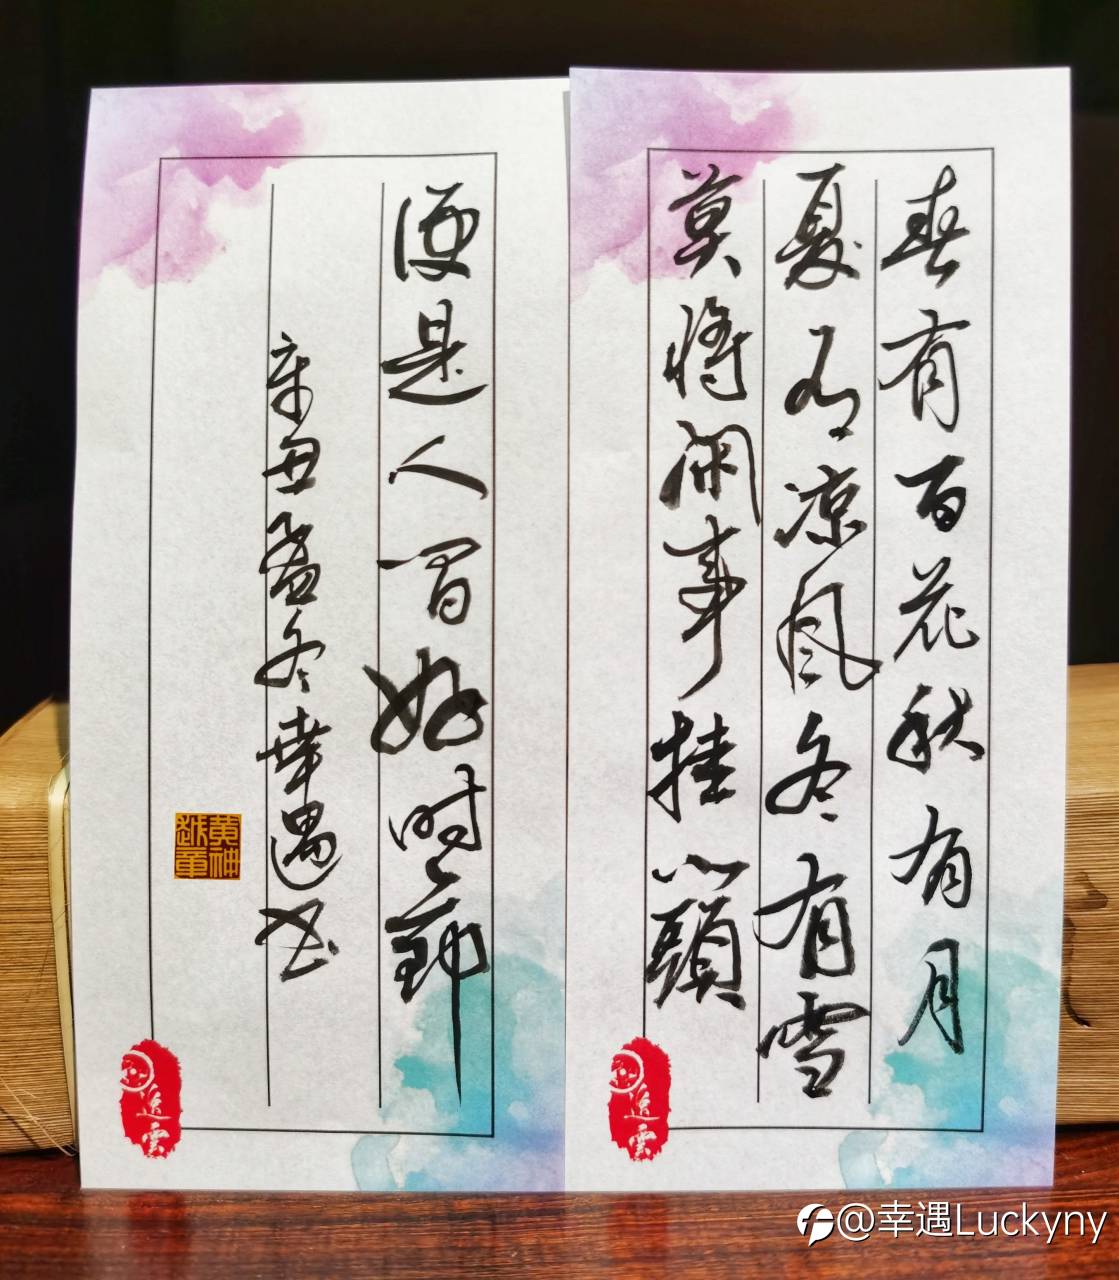 春有百花秋有月
夏有凉風冬有雪
莫将閑事挂心頭
便是人間好时節
辛丑孟冬幸遇书
黄神越章
追雲
追雲
@幸遇Luckyny